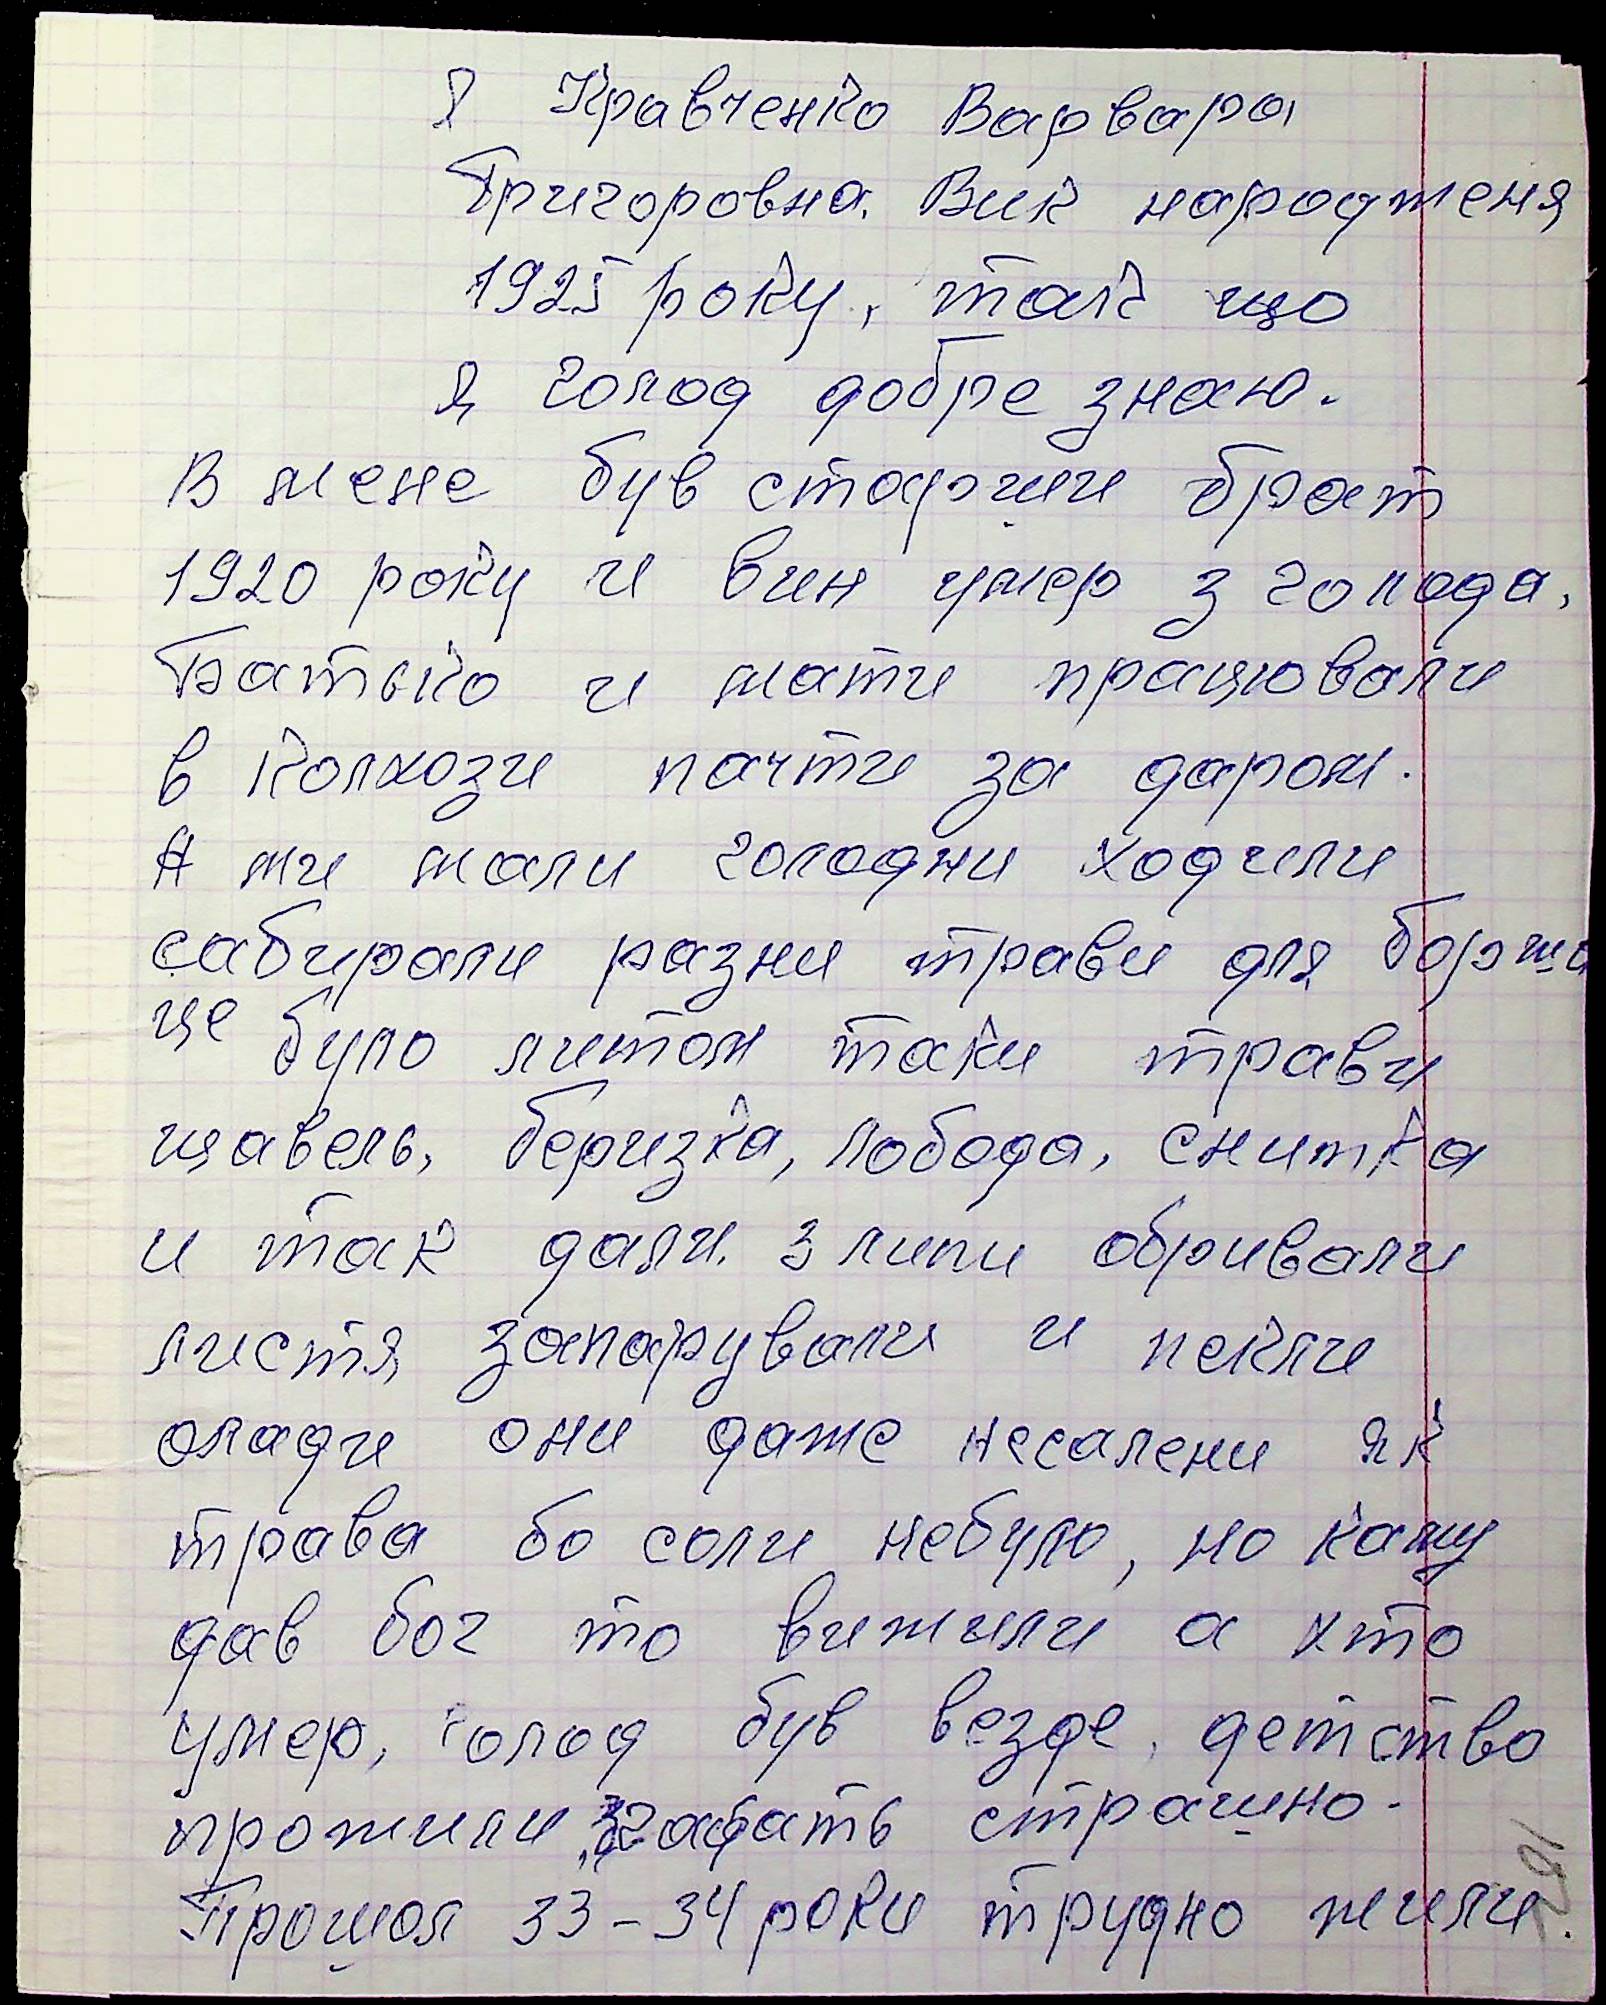 Я Кравченко Варвара
Григоровна. Вик народженя
1925 року, так що
я голод добре знаю.
В мене був старши брат
1920 року и вин умер з голода,
Батько и мати працювали
в колхози пачти за даром.
А ми мали голодни ходили
сабирали разни трави для борща
це було литом таки трави
щавель, беризка, лобода, снитка
и так дали. З липи обривали
листя запарували и пекли
олади они даже несалени як
трава бо соли небуло, но каму
дав бог то вижили а хто
умер, голод був везде, детство
прожили страшно.
Прошол 33-34 роки трудно жили.
187